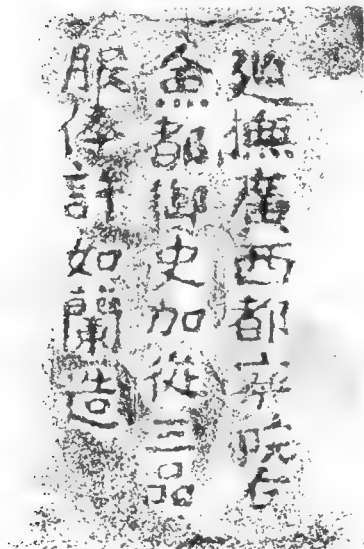 廵撫廣西都察院右
僉都御史加從三品
服俸許如蘭造